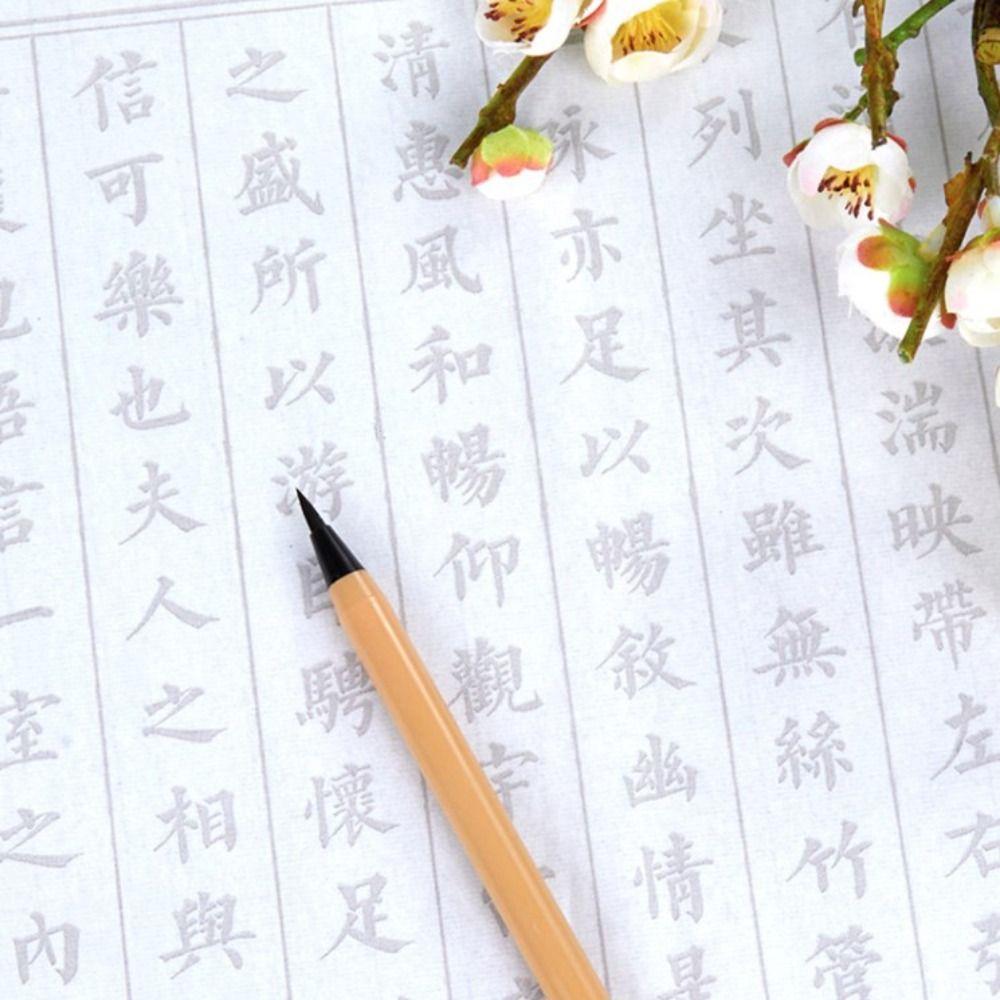 湍映帶左右
列坐其次雖無絲竹管
詠亦足以暢敘幽情是
清惠風和暢仰觀宇
之盛所以游目騁懷足
信可樂也夫人之相與
悟言一室之內